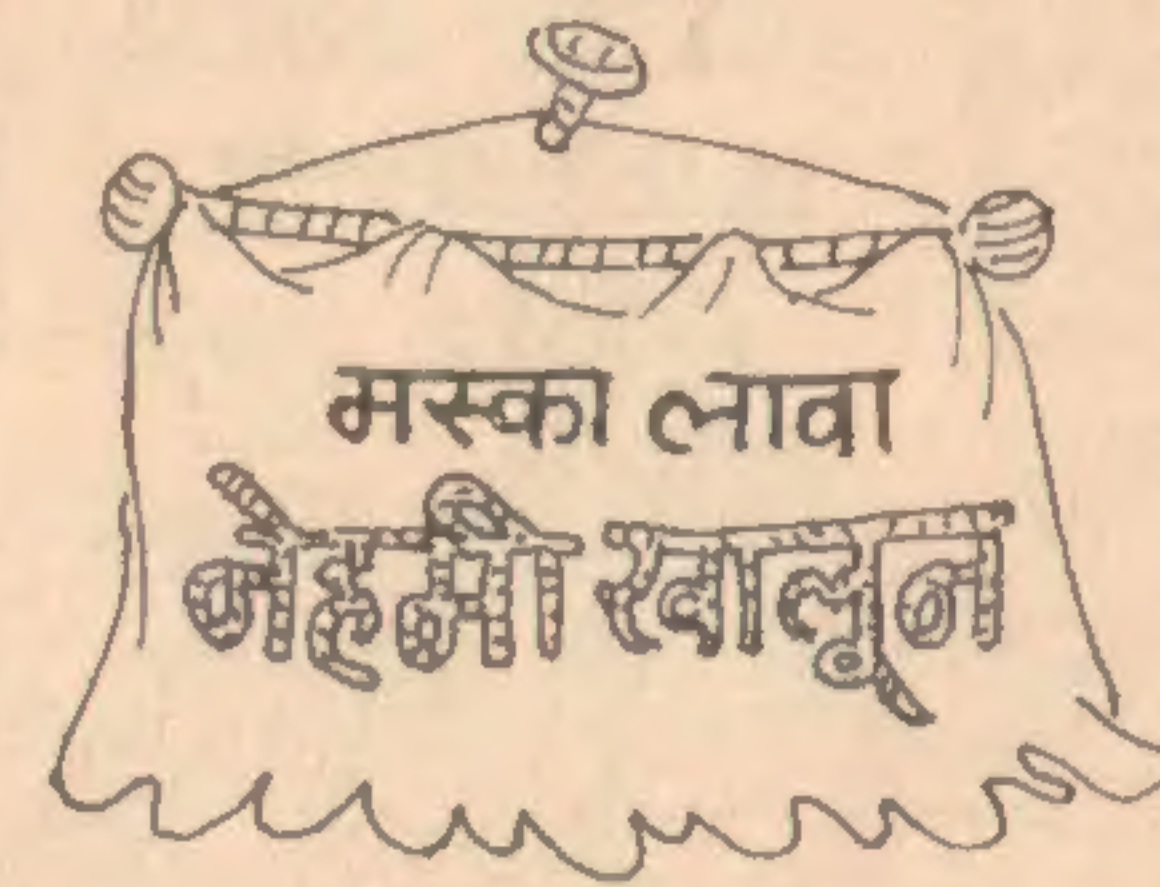 मस्का लावा
नेहमी खालून